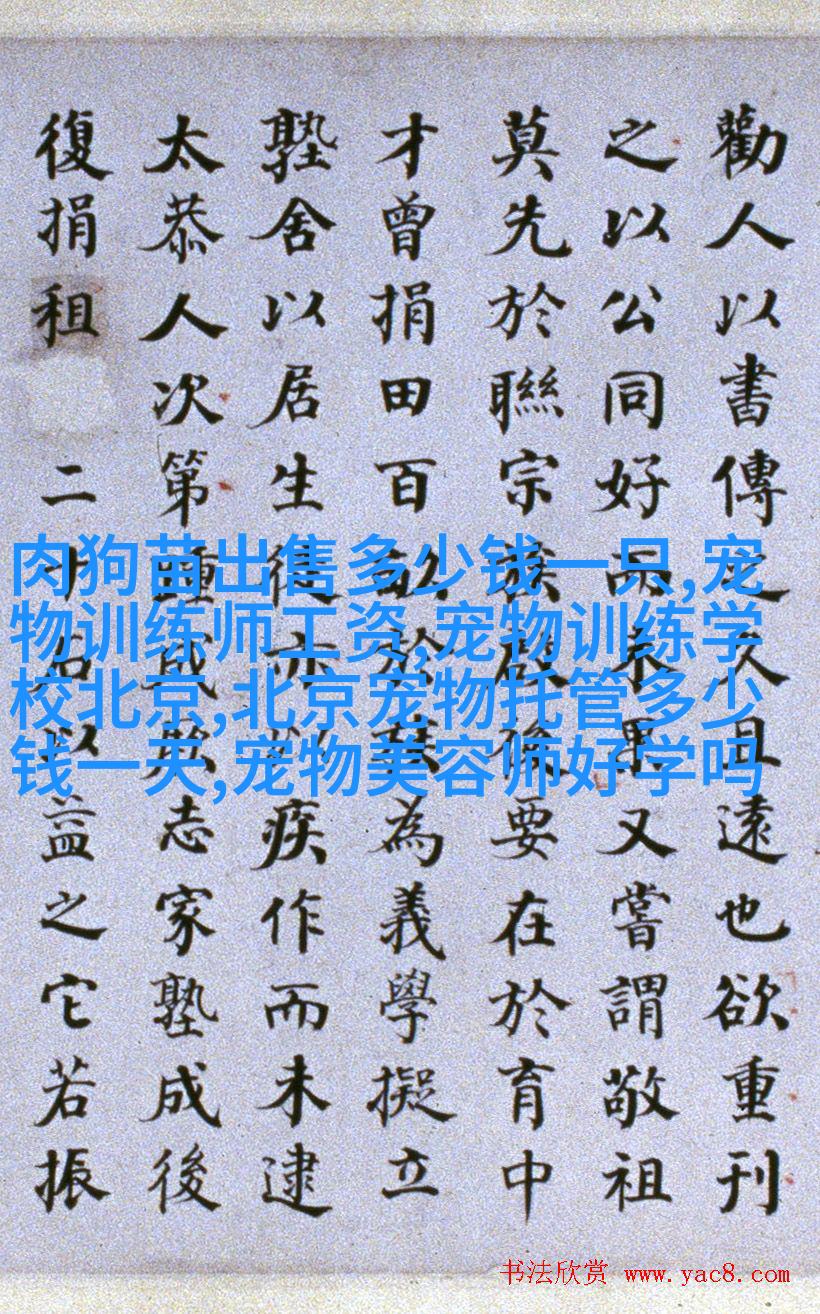 勸人以書傳之久且遠也欲重刊
之以公同好而未果又嘗謂敬祖
莫先於聯宗族啟後要在於育中
才曾捐田百畝於族為義學擬立
塾舍以居生徒亦以疾作而未逮
太恭人次第踵成志家塾成後
復捐租二十石以益之它若振
肉狗苗出售多少钱一只,宠
物训练师工资,宠物训练学
校北京,北京宠物托管多少
钱一天,宠物美容师好学吗
书法欣赏 www.yac8.com